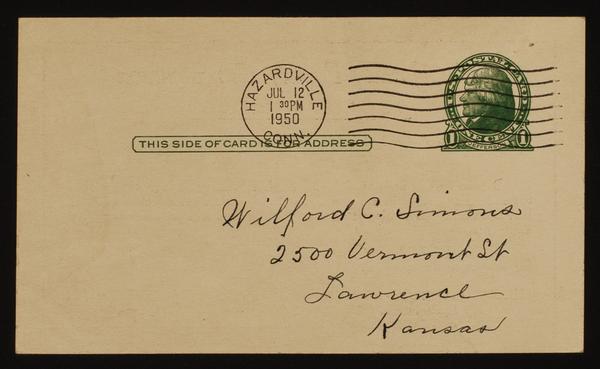 HAZARDVILLE
JUL 12
1 30 PM
1950
CONN.
THIS SIDE OF CARD IS FOR ADDRESS
1 JEFFERSON 1
Wilford C. Simons
2500 Vermont St
Lawrence
Kansas